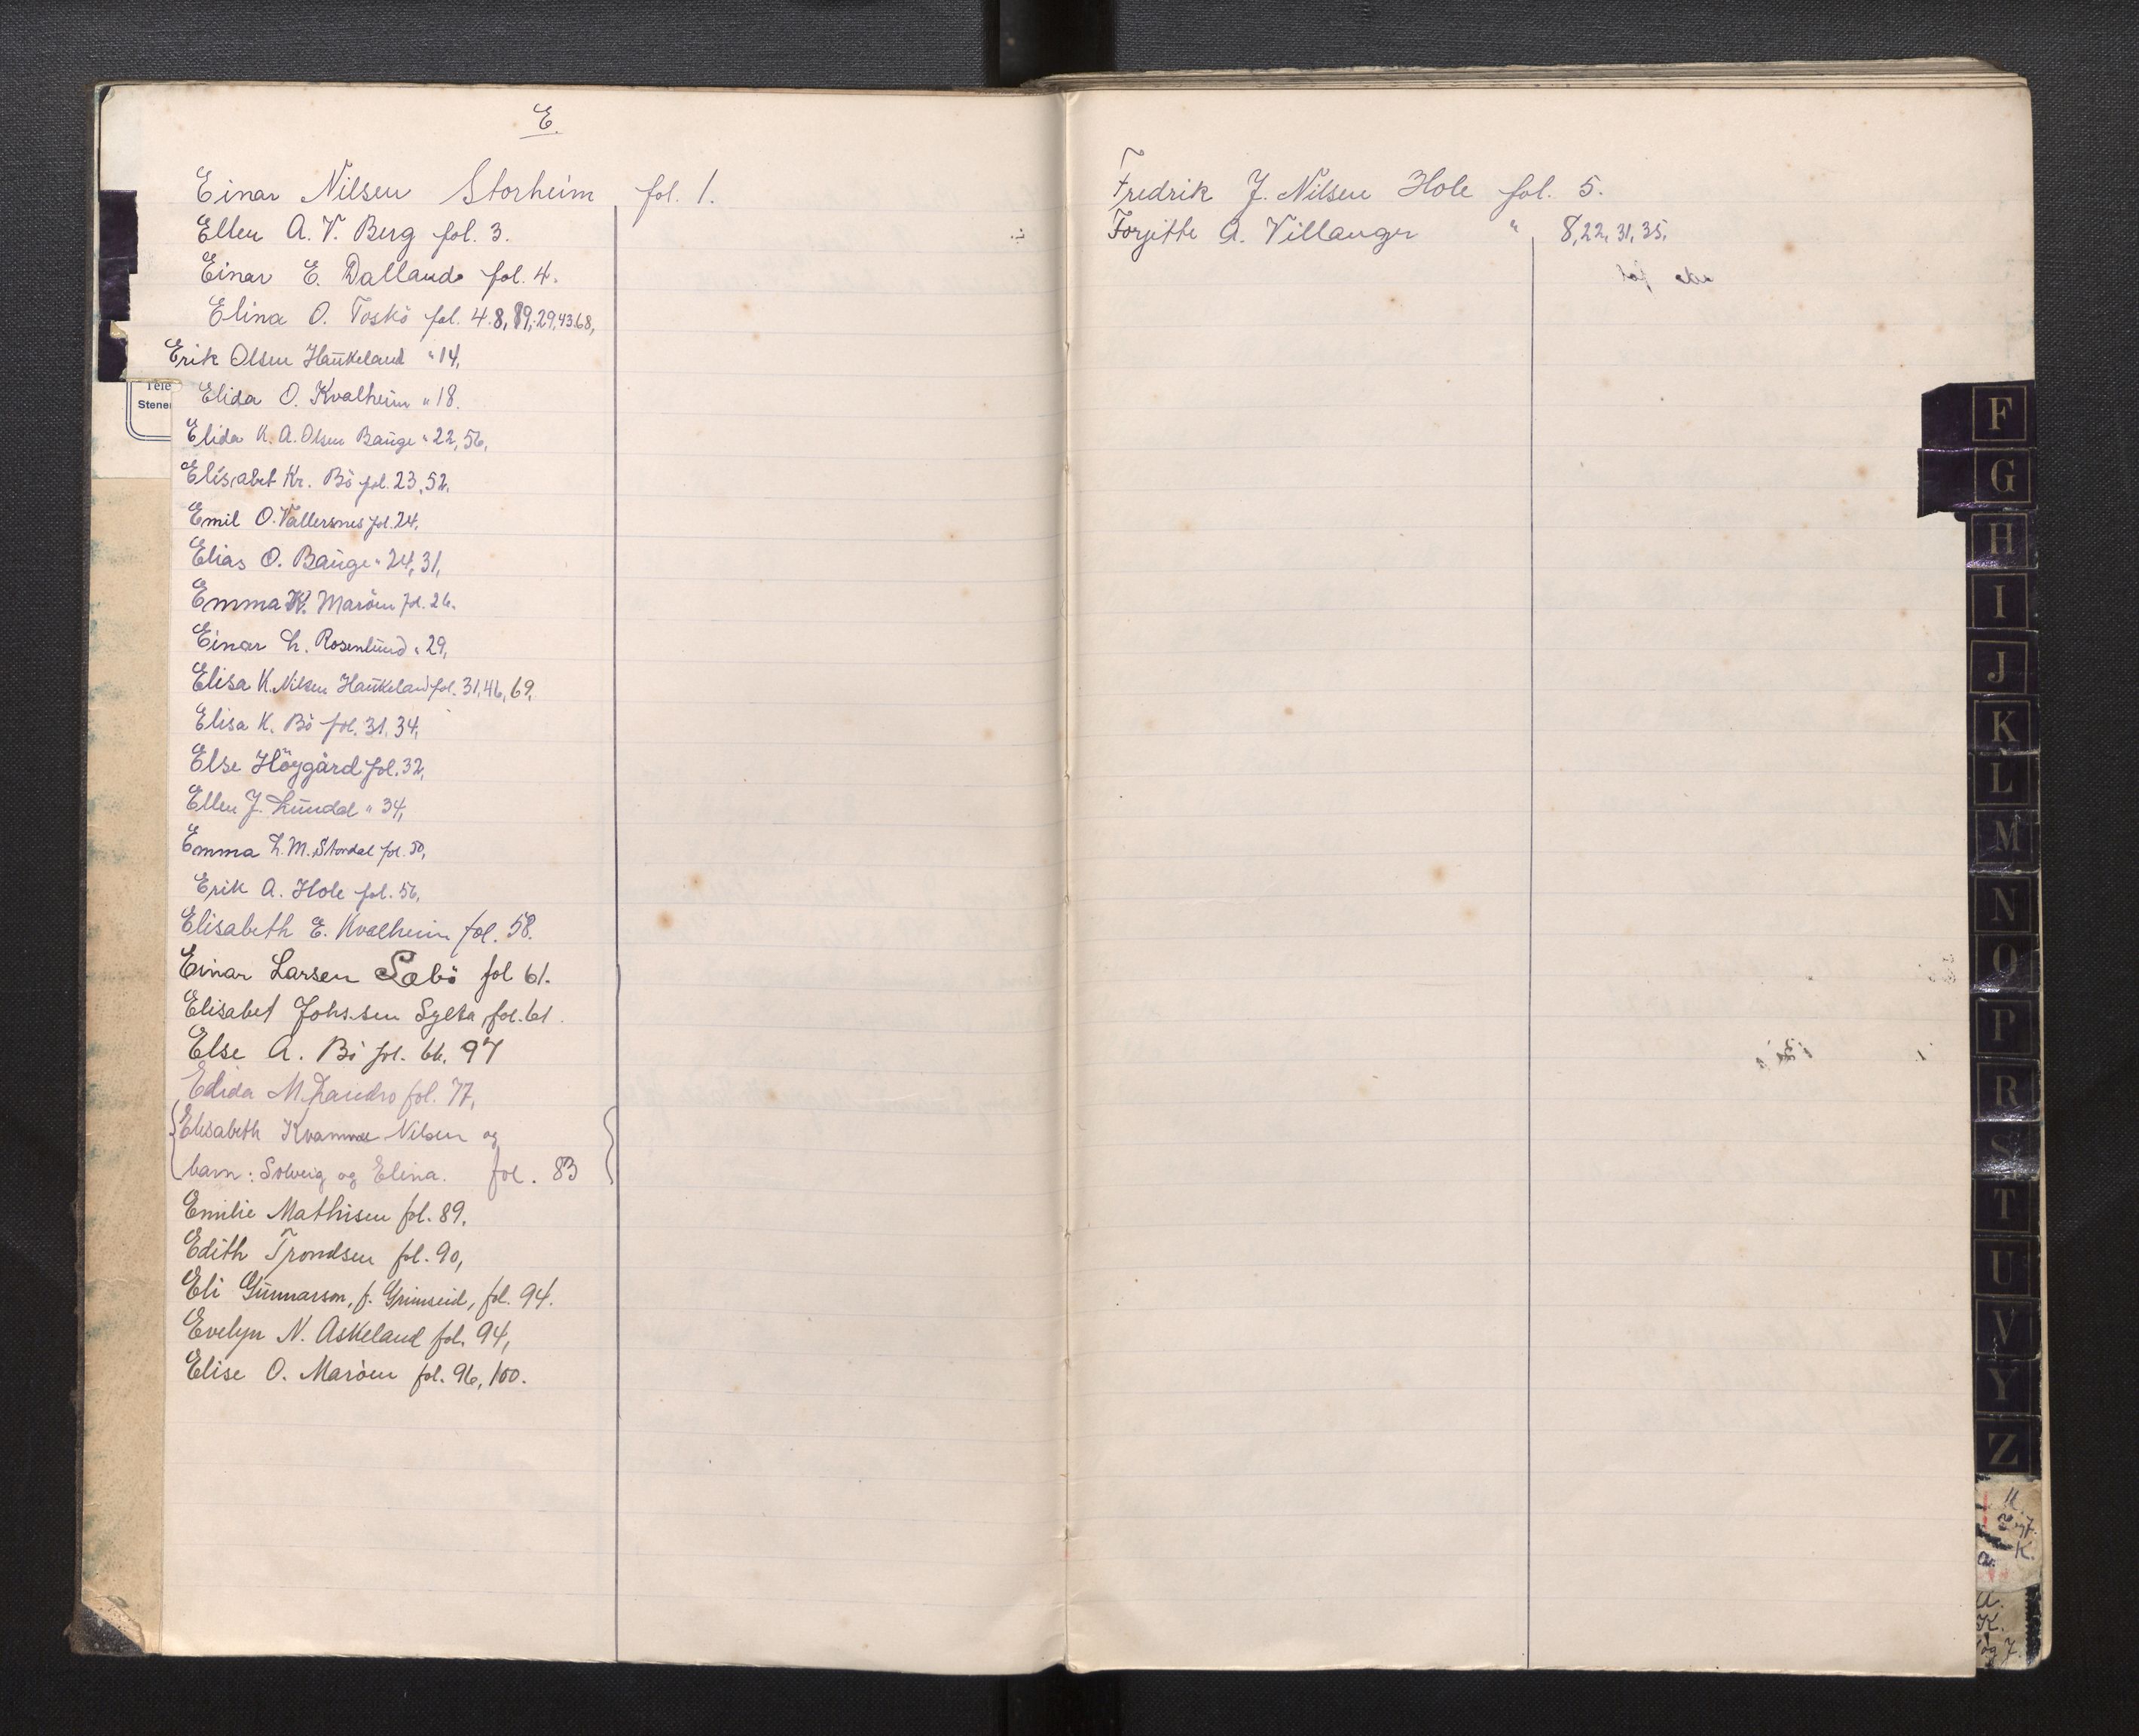 E.
Einar Nilsen Storheim fol. 1.
Ellen A. V. Berg fol. 3.
Einar E. Dalland fol. 4.
Elina O. Toskö fol. 4.8, 19, 29, 43.68,
Erik Olsen Haukeland " 14,
Tele
Stene
Elida O. Kvalheim " 18.
Elida K. A. Olsen Bauge " 22, 56,
Elisabet Kr. Bö fol. 23, 52.
Emil O. Vallersnes fol. 24,
Elias O. Bauge " 24, 31,
Emma K. Maröen fol. 26.
Einar L. Rosenlund " 29,
Elisa K. Nilsen Haukeland fol. 31, 46, 69.
Elisa K. Bö fol. 31, 34,
Else Höygård fol. 32,
Ellen J. Lundal " 34,
Emma L. M. Stordal fol. 50,
Erik A. Hole fol. 56,
Elisabeth E. Kvalheim fol. 58.
Einar Larsen Sæbö fol 61.
Elisabet Johs.sen Sylta, fol. 61.
Else A. Bö fol. 66. 97
Edida M. Landro fol. 77,
Elisabeth Kvamme Nilsen og
barn: Solveig og Elina. fol. 83
Emilie Mathisen fol. 89.
Edith Trondsen fol. 90,
Eli Gunnarson, f. Grimseid, fol. 94.
Evelyn N. Askeland fol. 94,
Elise O. Maröen fol. 96, 100.
Fredrik J. Nilsen Hole fol. 5.
Forgitte A. Villanger " 8, 22, 31, 35,
F
G
H
I
J
K
L
M
N
O
P
R
S
T
U
V
Y
Z
K.
a.
K.
og J.